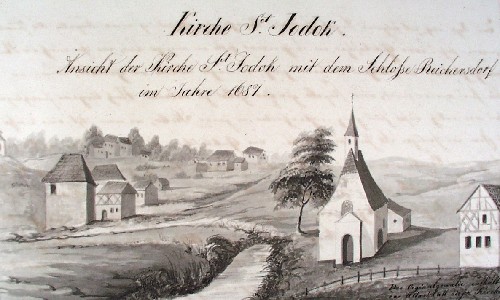 Kirche St Jodok.
Ansicht der Kirche St Jodok mit dem Schloße Reichersdorf
im Jahre 1687.